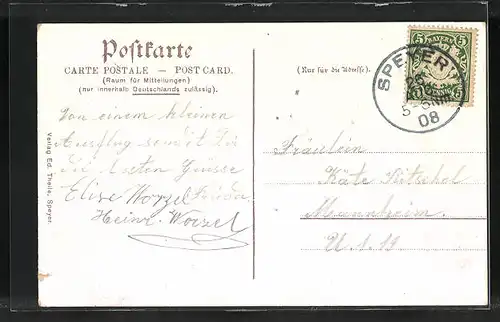 Postkarte
CARTE POSTALE – POST CARD.
(Raum für Mitteilungen)
(nur innerhalb Deutschlands zulässig).
Von einem kleinen
Ausflug sendet Dir
die besten Grüsse
Elise Worzel Frieda
Heinr. Worzel
Verlag Ed. Theile, Speyer.
(Nur für die Adresse).
BAYERN
5 5
SPEYER
5-6NM
08
Fräulein
Käte
Mannheim.
U. 1. 19